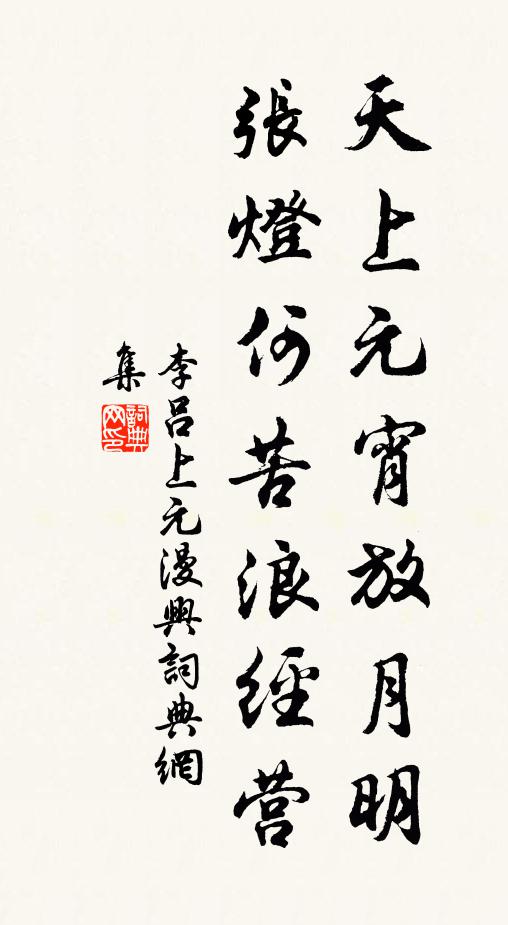 天上元宵放月明
張燈何苦浪經营
李呂上元漫興詞典網
集
詞典网印